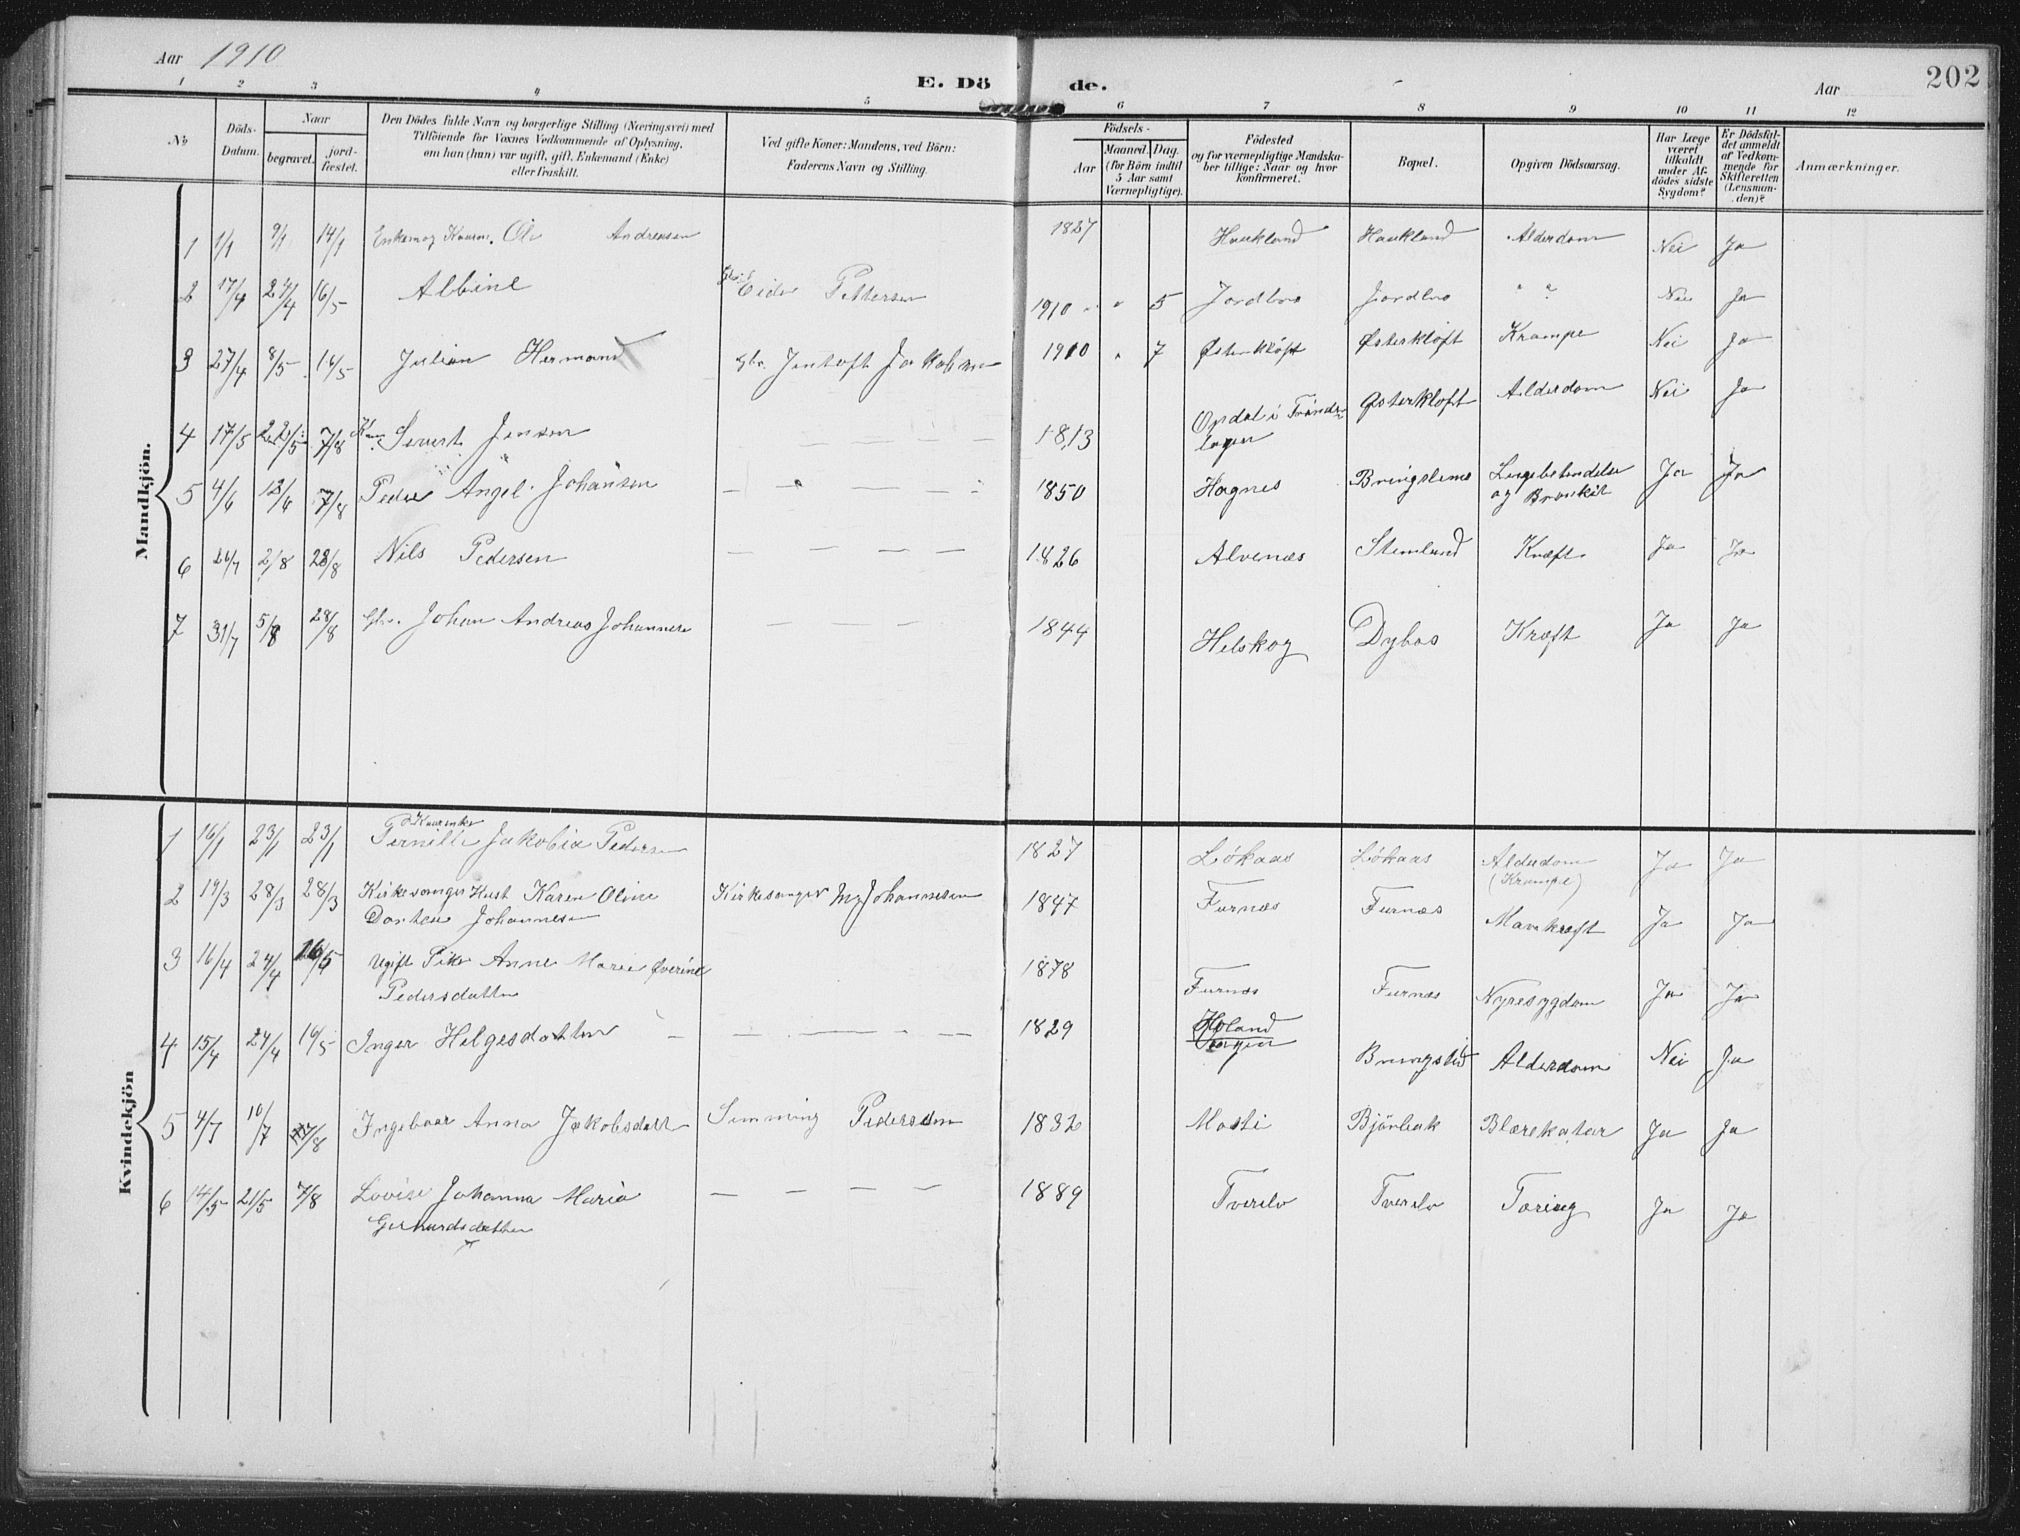 Aar 1910
E. Döde.
Aar
202
1 2 3 4 5 6 7 8 9 10 11 12
No
Döds-Datum.
Naar
begravet.
jord-fæstet.
Den Dödes fulde Navn og borgerlige Stilling (Næringsvei) med
Tilföiende for Voxnes Vedkommende af Oplysning,
om han (hun) var ugift, gift, Enkemand (Enke)
eller fraskilt.
Ved gifte Koner: Mandens, ved Börn:
Faderens Navn og Stilling.
Födsels-
Aar
Maaned. Dag.
(for Börn indtil
5 Aar samt
Værnepligtige).
Födested
og for værnepligtige Mandska-
ber tillige: Naar og hvor
konfirmeret.
Bopæl.
Opgiven Dödsaarsag.
Har Læge
været
tilkaldt
under Af-
dödes sidste
Sygdom?
Er Dödsfal-
det anmeldt
af Vedkom-
mende for
Skifteretten
(Lensman-
den)?
Anmærkninger.
Mandkjön.
1 1/1 9/1 14/1 Andreasen 1827 Haukland Haukland Alderdom Nei Ja
2 17/4 24/4 16/5 Albine Pettersen 1910 " " 5 Jordbro Jordbro " " Nei Ja
3 27/4 8/5 16/5 Julian Hermand Gbr. Jentoft Jakobsen 1910 " 7 Østerkløft Østerkløft Krampe Nei Ja
4 17/5 22/5 7/8 Sivert Jensen — — — — 1813 Opdal i Trønde-
lagen Østerkløft Alderdom Nei Ja
5 4/6 12/6 7/8 Peder Angel Johansen — — — — 1850 Hognes Lungebetendelse
og Bronkit Ja Ja
6 26/7 2/8 28/8 Nils Pedersen — — — — 1826 Alvenæs Stemland Kræft Ja Ja
7 31/7 5/8 28/8 Gbr. Johan Andreas Johannesen — — — 1844 Helskog Dybos Kræft Ja Ja
Kvindekjön
1 16/1 23/1 23/1 Kaarenke
Pernille Jakobia Pedersen 1827 Løkaas Løkaas Alderdom
(Krampe) Ja Ja
2 19/3 28/3 28/3 Kirkesanger Hust Karen Oline
Dortea Johannesen Kirkesanger Johannesen 1847 Furnæs Furnæs Mavekræft Ja Ja
3 16/4 24/4 16/5 Ugift Pike Anne Marie Øverine
Pedersdatter 1878 Furnæs Furnæs Nyresygdom Ja Ja
4 15/4 24/4 16/5 Inger Helgesdatter — — — — — 1829 Holand Bringslid Alderdom Nei Ja
5 4/7 10/7 7/8 Ingebaar Anna Jakobsdatt Simming Pedersen 1832 Mosti Bjørbak Blærekatar Ja Ja
6 14/5 21/5 7/8 Lovise Johanna Maria
Gerhardsdatter — — — — — 1889 Tverelv Tverelv Tæring Ja Ja